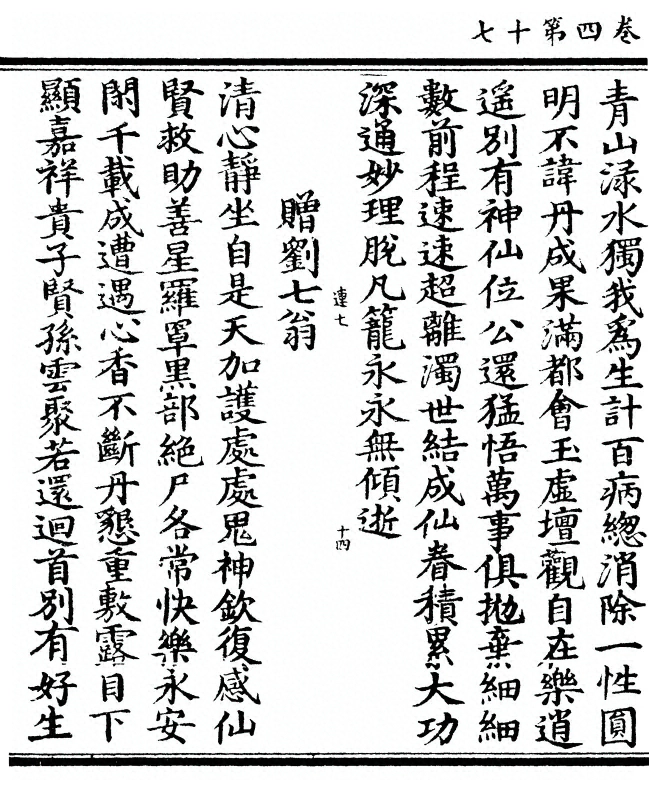 卷四第十七
青山渌水獨我爲生計百病緫消除一性圓
明不諱丹成果滿都會玉虛壇觀自在樂逍
遥別有神仙位公還猛悟萬事俱拋棄細細
數前程速速超離濁世結成仙眷積累大功
深通妙理脫凡籠永永無傾逝
連七
十四
贈劉七翁
清心靜坐自是天加護處處鬼神欽復感仙
賢救助善星羅罩黒部絶尸各常快樂永安
閑千載成遭遇心香不斷丹懇重敷露目下
顯嘉祥貴子賢孫雲聚若還迴首別有好生